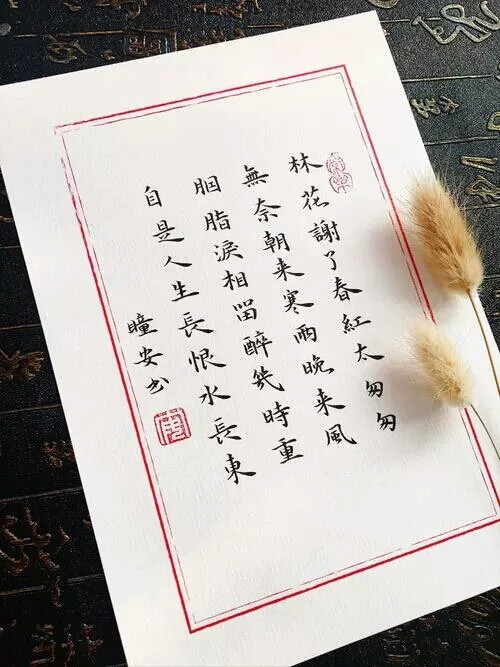 林花謝了春紅太匆匆
無奈朝来寒雨晚来風
胭脂淚相留醉幾時重
自是人生長恨水長東
瞳安书